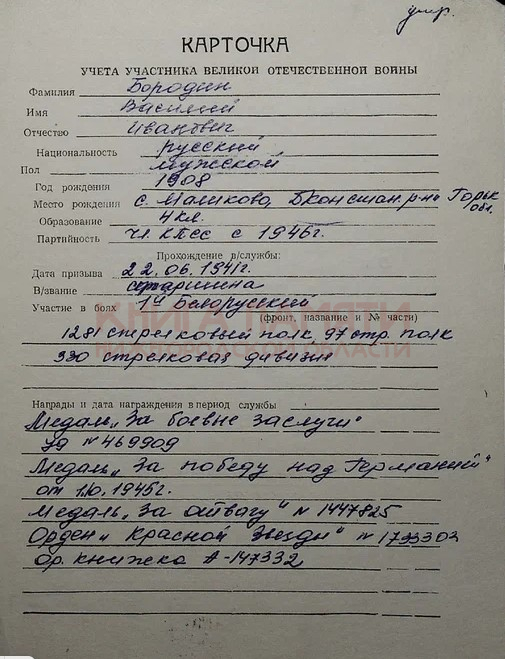 умр.
КАРТОЧКА
УЧЕТА УЧАСТНИКА ВЕЛИКОЙ ОТЕЧЕСТВЕННОЙ ВОЙНЫ
Фамилия Бородин
Имя Василий
Отчество Иванович
Национальность русский
Пол мужской
Год рождения 1908
Место рождения с. Маликово, Бконстан. р-на Горьк обл.
Образование 4 кл.
Партийность чл. КПСС с 1946г.
Прохождение в/службы:
Дата призыва 22.06.1941г.
В/звание старшина
Участие в боях 1й Белорусский
(фронт, название и № части)
1281 стрелковый полк 97 стр. полк
330 стрелковая дивизия
КНИГА ПАМЯТИ
НИЖЕГОРОДСКОЙ ОБЛАСТИ
Награды и дата награждения в период службы
Медаль „За боевые заслуги"
уд № 469909
Медаль „За победу над Германией"
от 1946г.
Медаль „За отвагу" № 1447825
Орден „Красной Звезды" № 1733302
ор. книжка А-147332